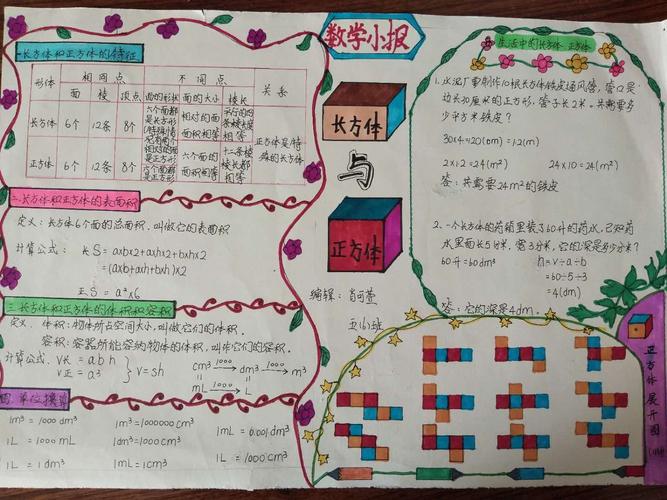 数学小报
长方体
与
正方体
编辑：肖可萱
五(6)班
一.长方体和正方体的特征
形体 相同点 不同点 关系
面 棱 顶点 面的形状 面的大小 棱长
长方体 6个 12条 8个 六个面都是长方形(特殊情况有两个相对的面是正方形) 相对的面面积相等 平行的四条棱长度相等
正方体是特殊的长方体
正方体 6个 12条 8个 六个面都是正方形 六个面的面积相等 十二条棱棱长都相等
二.长方体和正方体的表面积
定义：长方体6个面的总面积，叫做它的表面积
计算公式： 长S=axbx2+axhx2+bxhx2
=(axb+axh+bxh)x2
正S=a²x6
三.长方体和正方体的体积和容积
定义. 体积：物体所占空间大小，叫做它们的体积.
容积：容器所能容纳物体的体积，叫作它们的容积.
计算公式. V长=abh
V正=a³
V=sh
cm³ 1000 dm³ 1000 m³
mL 1000 L
四.单位换算
1m³=1000dm³ 1m³=1000000cm³ 1mL=0.001dm³
1L=1000mL 1dm³=1000cm³ 1L=1000cm³
1L=1dm³ 1mL=1cm³
生活中的长方体 正方体
1.水泥厂要制作10根长方体铁皮通风管，管口是
边长30厘米的正方形，管子长2米，共需要多
少平方米铁皮？
30x4=120(cm)=1.2(m)
2x1.2=2.4(m²) 2.4x10=24(m²)
答：共需要24m²的铁皮
2.一个长方体的药箱里装了60升的药水，已知药
水里面长5分米，宽3分米，它的深是多少分米？
60升=60dm³ h=v÷a÷b
=60÷5÷3
=4(dm)
答：它的深是4dm.
正方体展开图